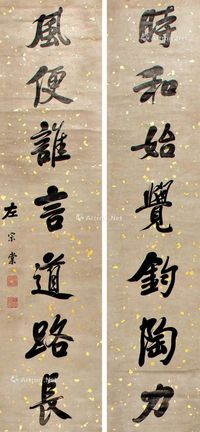 時和始覺鈞陶力
風便誰言道路長
左宗棠